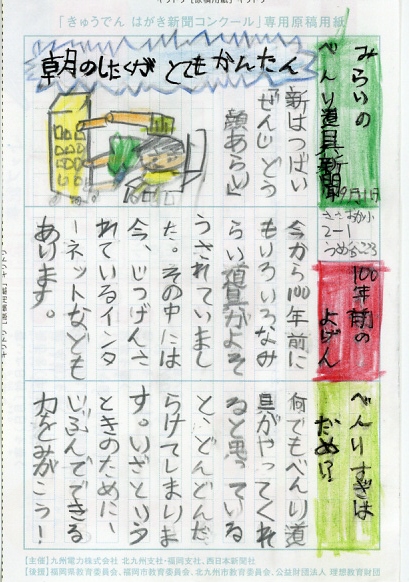 「きゅうでん はがき新聞コンクール」専用原稿用紙
みらいの
べんり道具新聞
朝のしたくが とてもかんたん
新はつばい
「ぜんじどう
顔あらい」
2-1
今から100年前に
もいろいろなみ
らい道具がよそ
うされていまし
た。その中には
今、じつげんさ
れているインタ
ーネットなども
あります。
100年前の
よげん
べんりすぎは
だめ!?
何でもべんり道
具がやってくれ
ると思っている
と、どんどんだ
らけてしまいま
す。いざという
ときのために、
じぶんでできる
力をみがこう!
【主催】九州電力株式会社 北九州支社・福岡支社、西日本新聞社
【後援】福岡県教育委員会、福岡市教育委員会、北九州市教育委員会、公益財団法人 理想教育財団